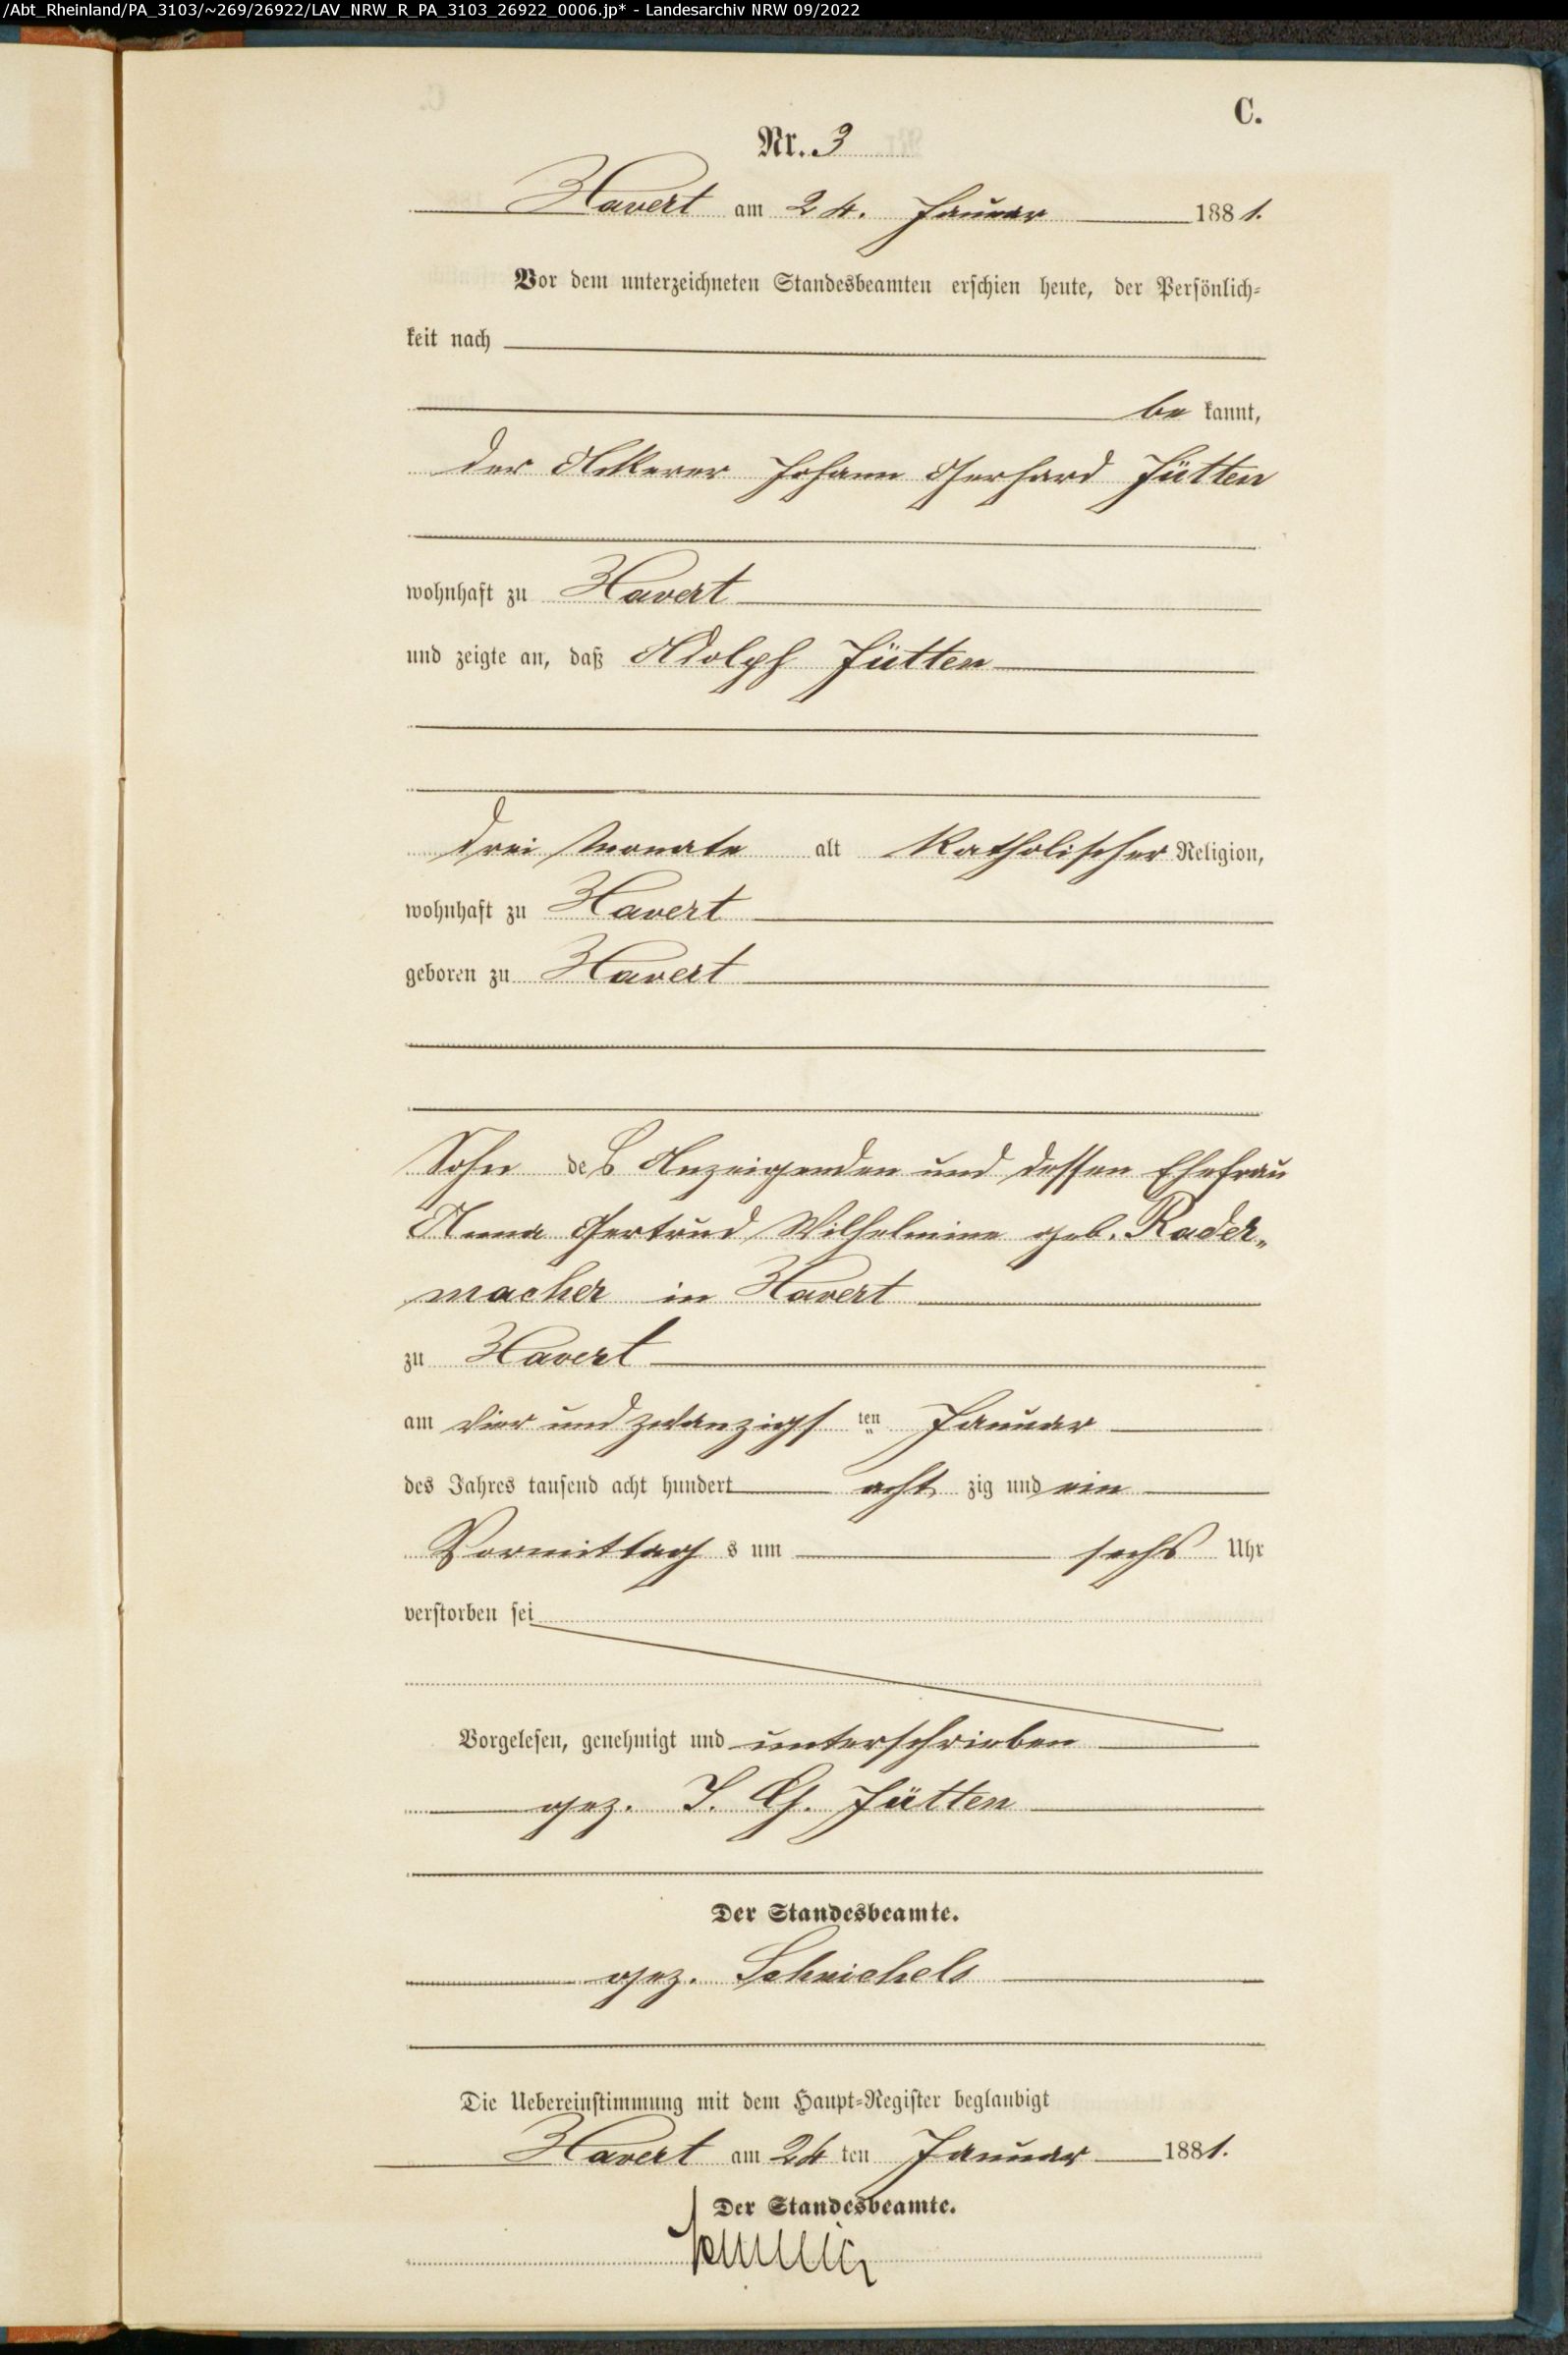 /Abt_Rheinland/PA_3103/~269/26922/LAV_NRW_R_PA_3103_26922_0006.jp* - Landesarchiv NRW 09/2022
C.
Nr. 3
Havert am 24. Januar 1881.
Vor dem unterzeichneten Standesbeamten erschien heute, der Persönlich-
keit nach
be kannt,
der Ackerer Johann Gerhard Jütten
wohnhaft zu Havert
und zeigte an, daß Adolph Jütten
drei Monate alt katholischer Religion,
wohnhaft zu Havert
geboren zu Havert
Sohn des Anzeigenden und dessen Ehefrau
Anna Gertrud Wilhelmine geb. Rader„
macher in Havert
zu Havert
am vier und zwanzigsten Januar
des Jahres tausend acht hundert acht zig und ein
Vormittag s um sechs Uhr
verstorben sei
Vorgelesen, genehmigt und unterschrieben
gez. J. G. Jütten
Der Standesbeamte.
gez.
Die Uebereinstimmung mit dem Haupt-Register beglaubigt
Havert am 24 ten Januar 1881.
Der Standesbeamte.